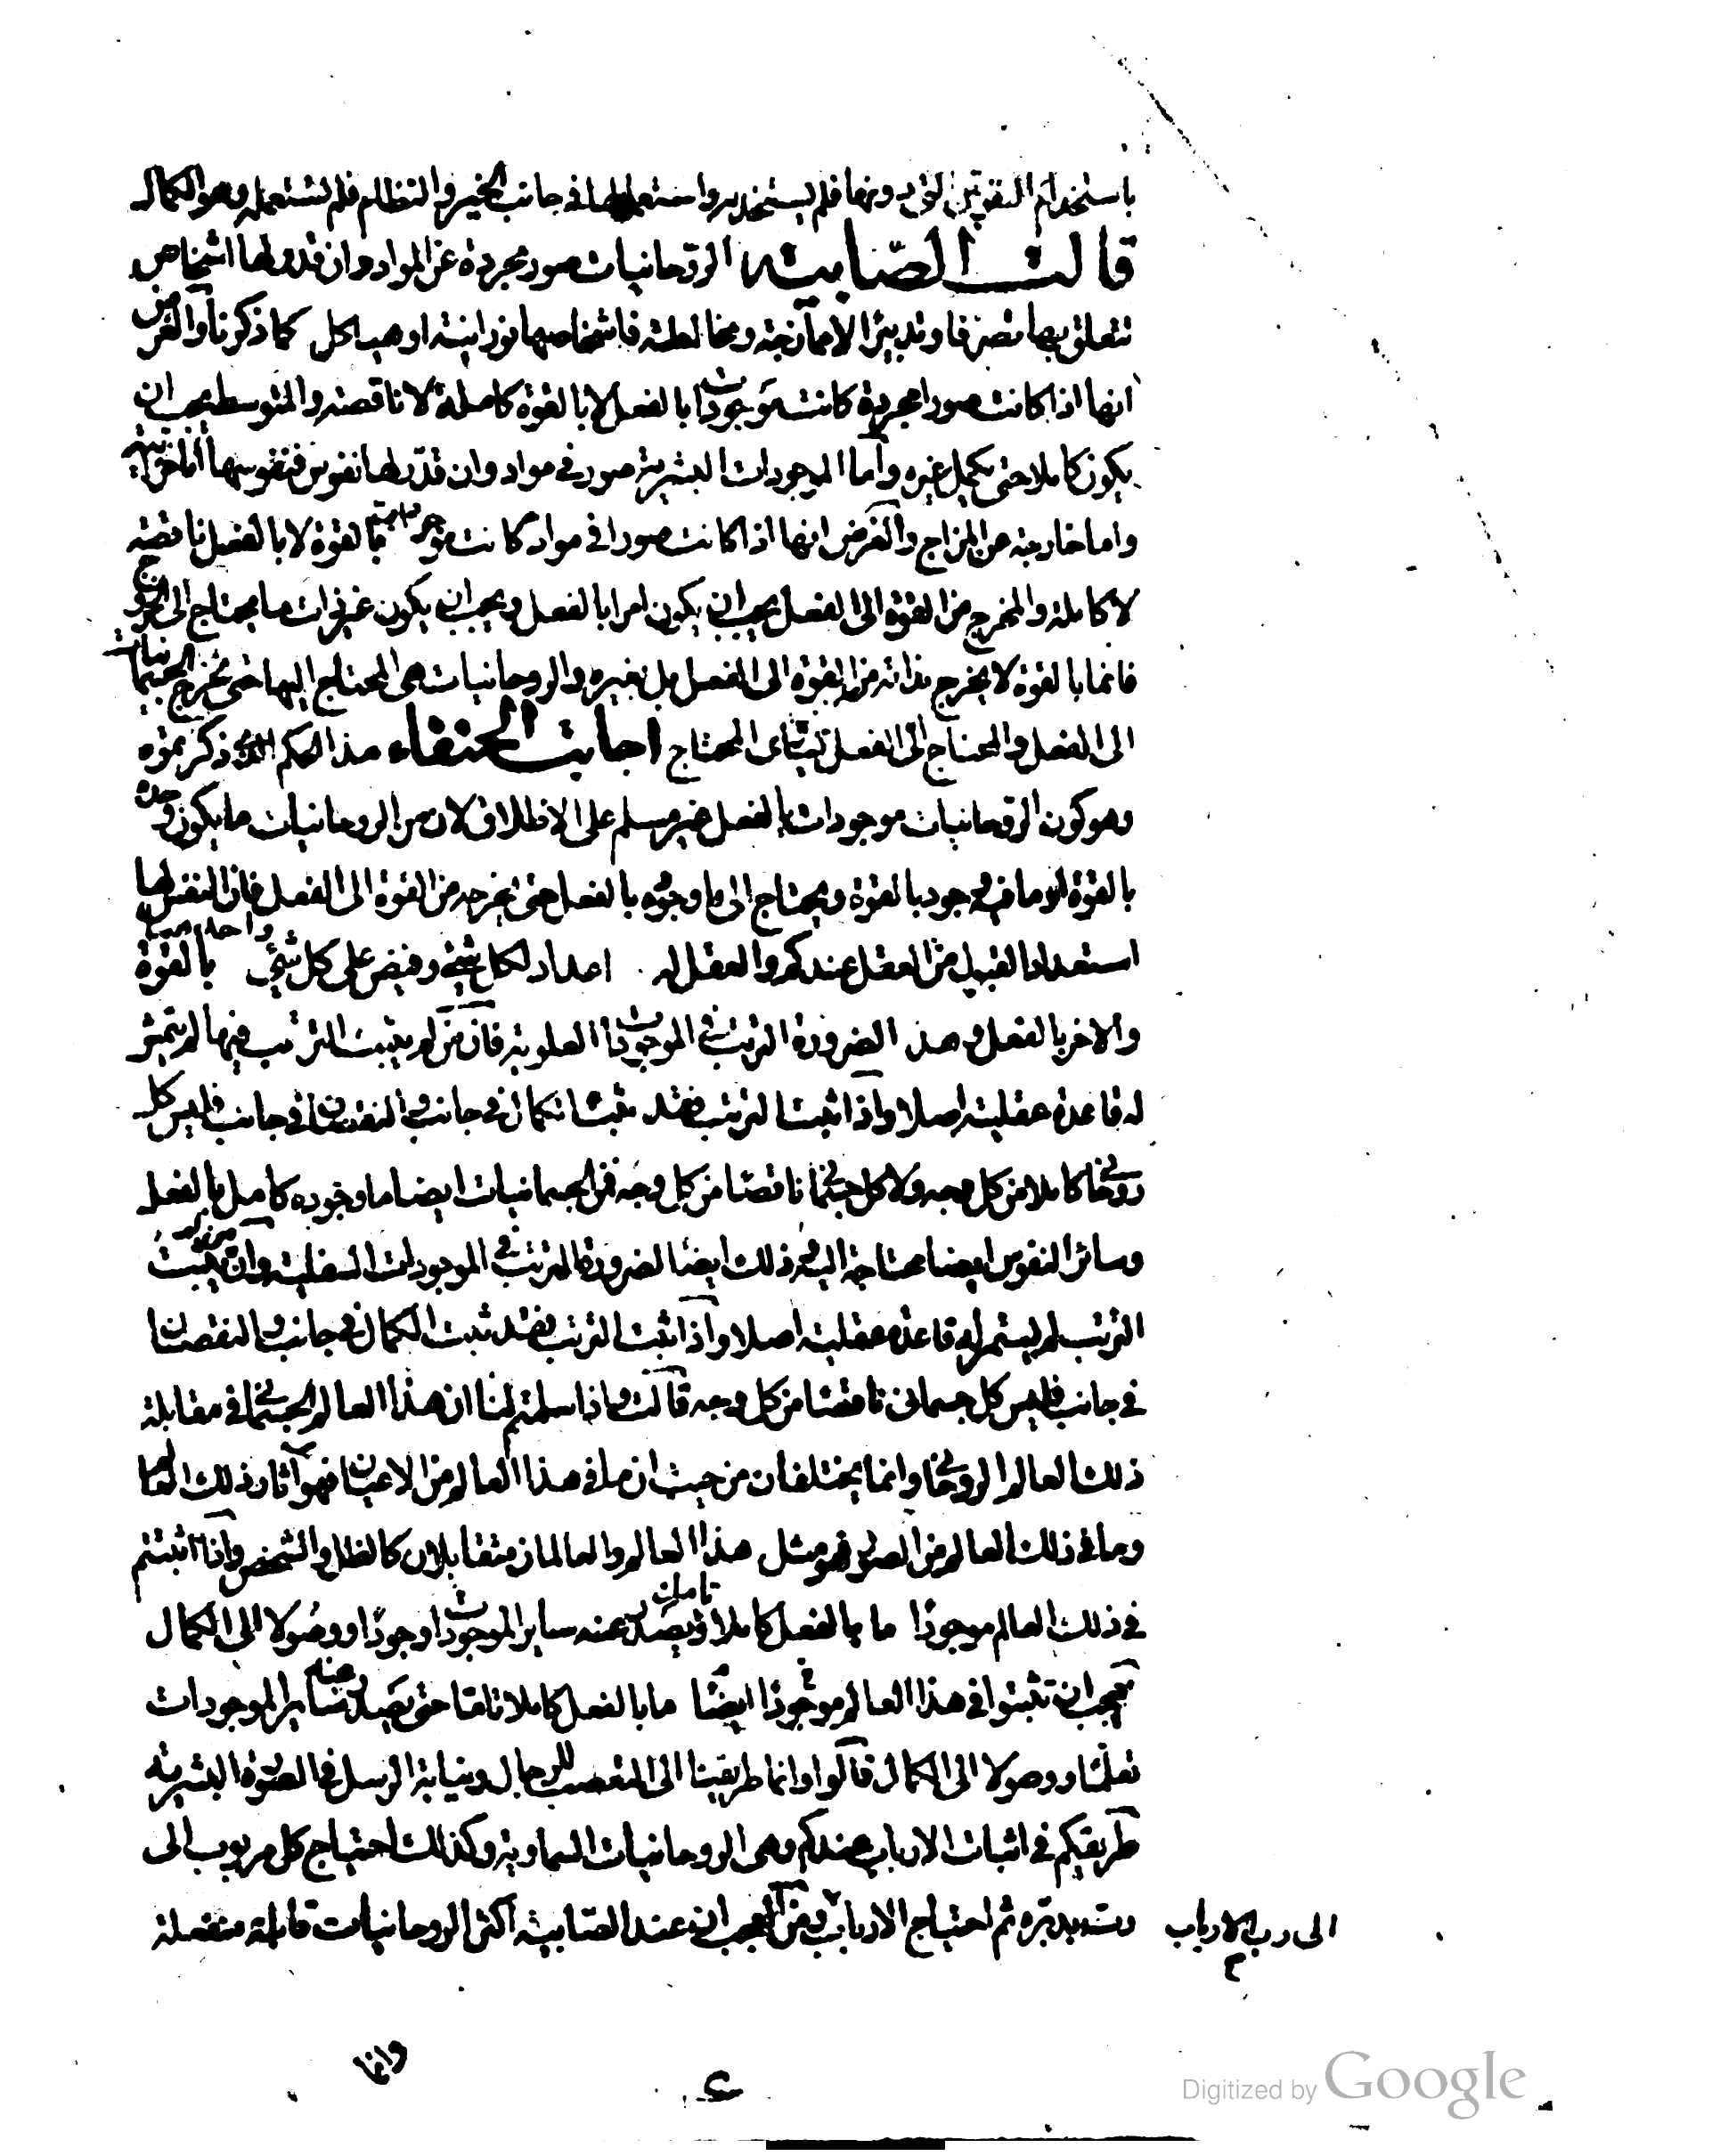 باستخدام النفوس التى دونها فلم يستخدمه واستعملها فى جانب الخير والنظام فلم تستعمله وهو الكمال
قالت الصابئة الروحانيات صور مجردة عن المواد وان قدر لها اشخاص
تتعلق بها تصرفا وتدبيرا لا ممازجة ومخالطة فاشخاصها نورانية او هياكل كما ذكرنا والغرض
انها اذا كانت صورا مجردة كانت موجودات بالفعل لا بالقوة كاملة لا ناقصة والمتوسط يجب ان
يكون كاملا حتى يكمل غيره واما الموجودات البشرية صور فى مواد وان قدر لها نفوس فنفوسها اما مزاجية
واما خارجة عن المزاج والغرض انها اذا كانت صورا فى مواد كانت موجودات بالقوة لا بالفعل ناقصة
لا كاملة والمخرج من القوة الى الفعل يجب ان يكون امرا بالفعل ويجب ان يكون غير ذات ما يحتاج الى الخروج
فانما بالقوة لا يخرج بذاته من القوة الى الفعل بل بغيره والروحانيات هى المحتاج اليها حتى تخرج الجسمانيات
الى الفعل والمحتاج الى الفعل كيف يساوى المحتاج اجابت الحنفاء هذا الحكم الذى ذكرتموه
وهو كون الروحانيات موجودات بالفعل غير مسلم على الاطلاق لان من الروحانيات ما يكون وجوده
بالقوة او ما فيه وجود بالقوة ويحتاج الى ما وجوده بالفعل حتى يخرجه من القوة الى الفعل فان النفس لها
استعداد القبول من العقل عندكم والعقل له اعداد لكل شىء وفيض على كل شىء واحدهما بالقوة
والاخر بالفعل وهذا لضرورة الترتب فى الموجودات العلوية فان من لم يثبت الترتب فيها لم يتمش
له قاعدة عقلية اصلا واذا ثبت الترتب فقد ثبت الكمال فى جانب والنقصان فى جانب فليس كل
روحانى كاملا من كل وجه ولا كل جسمانى ناقصا من كل وجه فمن الجسمانيات ايضا ما وجوده كامل بالفعل
وسائر النفوس ايضا محتاجة اليه وذلك ايضا لضرورة الترتب فى الموجودات السفلية وان من لم يثبت
الترتب لم يستمر له قاعدة عقلية اصلا واذا ثبت الترتب فقد ثبت الكمال فى جانب والنقصان
فى جانب فليس كل جسمانى ناقصا من كل وجه قالت واذا سلمتم لنا ان هذا العالم الجسمانى فى مقابلة
ذلك العالم الروحانى وانما يختلفان من حيث ان ما فى هذا العالم من الاعيان فهو آثار ذلك العالم
وما فى ذلك العالم من الصور فهو مثل هذا العالم والعالمان متقابلان كالظل والشخص واذا اثبتم
فى ذلك العالم موجودا ما بالفعل كاملا تاما يصدر عنه سائر الموجودات وجودا ووصولا الى الكمال
فيجب ان تثبتوا فى هذا العالم موجودا ايضا ما بالفعل كاملا تاما حتى يصدر عنه سائر الموجودات
تعلما ووصولا الى الكمال قالوا وانما طريقنا الى التعصب للرجال ونيابة الرسل فى الصورة البشرية
طريقكم فى اثبات الارباب عندكم وهى الروحانيات السماوية وكذلك احتياج كل مربوب الى
رب يدبره ثم احتياج الارباب ومن العجب ان عند الصابئة اكثر الروحانيات قابلة منفعلة
الى رب الارباب
وانما
Digitized by Google